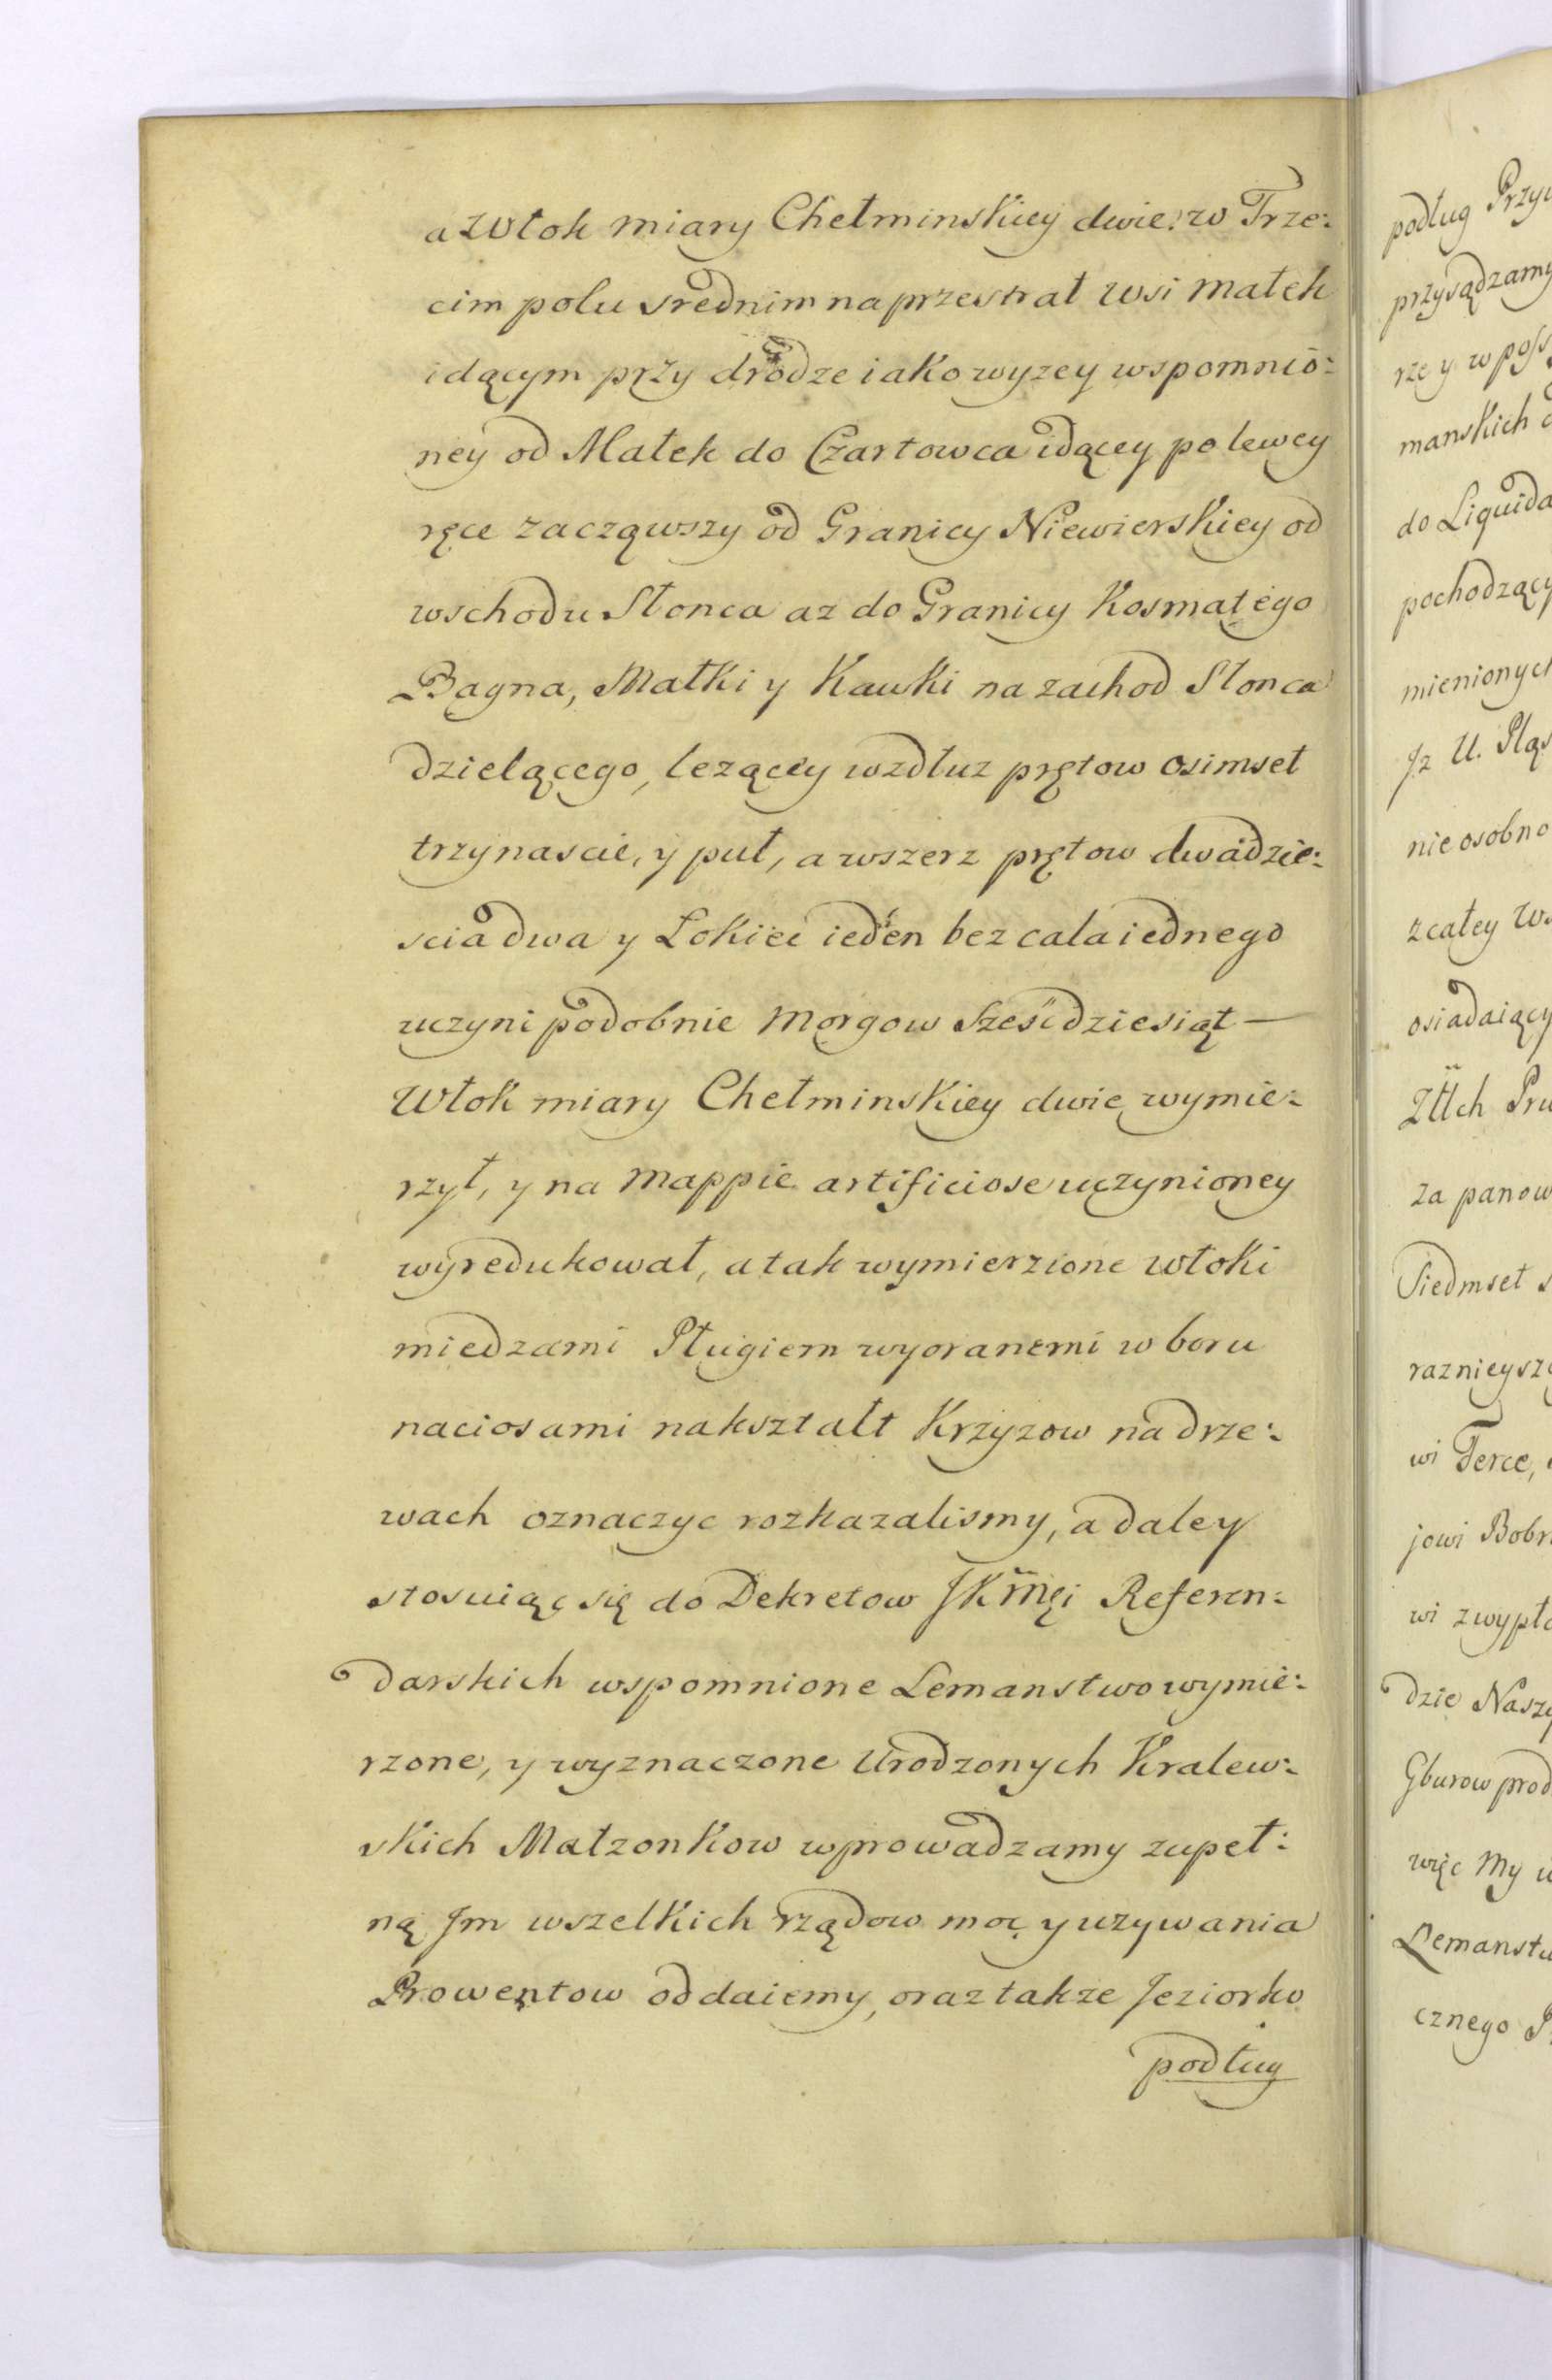 a Włok miary Chełminskiey dwie: w Trze:
cim polu srednim na przestrał wsi Małek
idącym przy drodze iako wyzey wspomnio:
ney od Małek do Czartowca idącey po lewey
ręce zacząwszy od Granicy Niewierskiey od
wschodu Słonca az do Granicy Kosmatego
Bagna, Małki y Kawki na zachod Słonca
dzielącego, lezącey wzdłuz prętow osimset
trzynascie, y puł, a wszerz prętow dwadzie:
scia dwa y Łokieć ieden bez cala iednego
uczyni podobnie Morgow Sześćdziesiąt —
Włok miary Chełminskiey dwie wymie:
rzył, y na Mappie artificiose uczynioney
wyredukował, a tak wymierzione włoki
miedzami Pługiem wyoranemi w boru
naciosami nakształt Krzyzow na drze:
wach oznaczyc rozkazalismy, a daley
stosuiąc się do Dekretow JKMęi Referen:
darskich wspomnione Lemanstwo wymie:
rzone, y wyznaczone Urodzonych Kralew:
skich Małzonkow wprowadzamy zupeł:
ną Jm wszelkich rządow moc y uzywania
Prowentow oddaiemy, oraz takze Jeziorko
podług
podług
przysądzamy
rze y w poss
manskich
do Liquida
pochodzący
mienionych
Jz U.
nie osobno
z całey
osiadaiący
za panow
Siedmset
raznieysz
wi Ferce,
jowi Bobr
wi z wypła
dzie Nasz
Gburow prod
więc My
Lemanstw
cznego